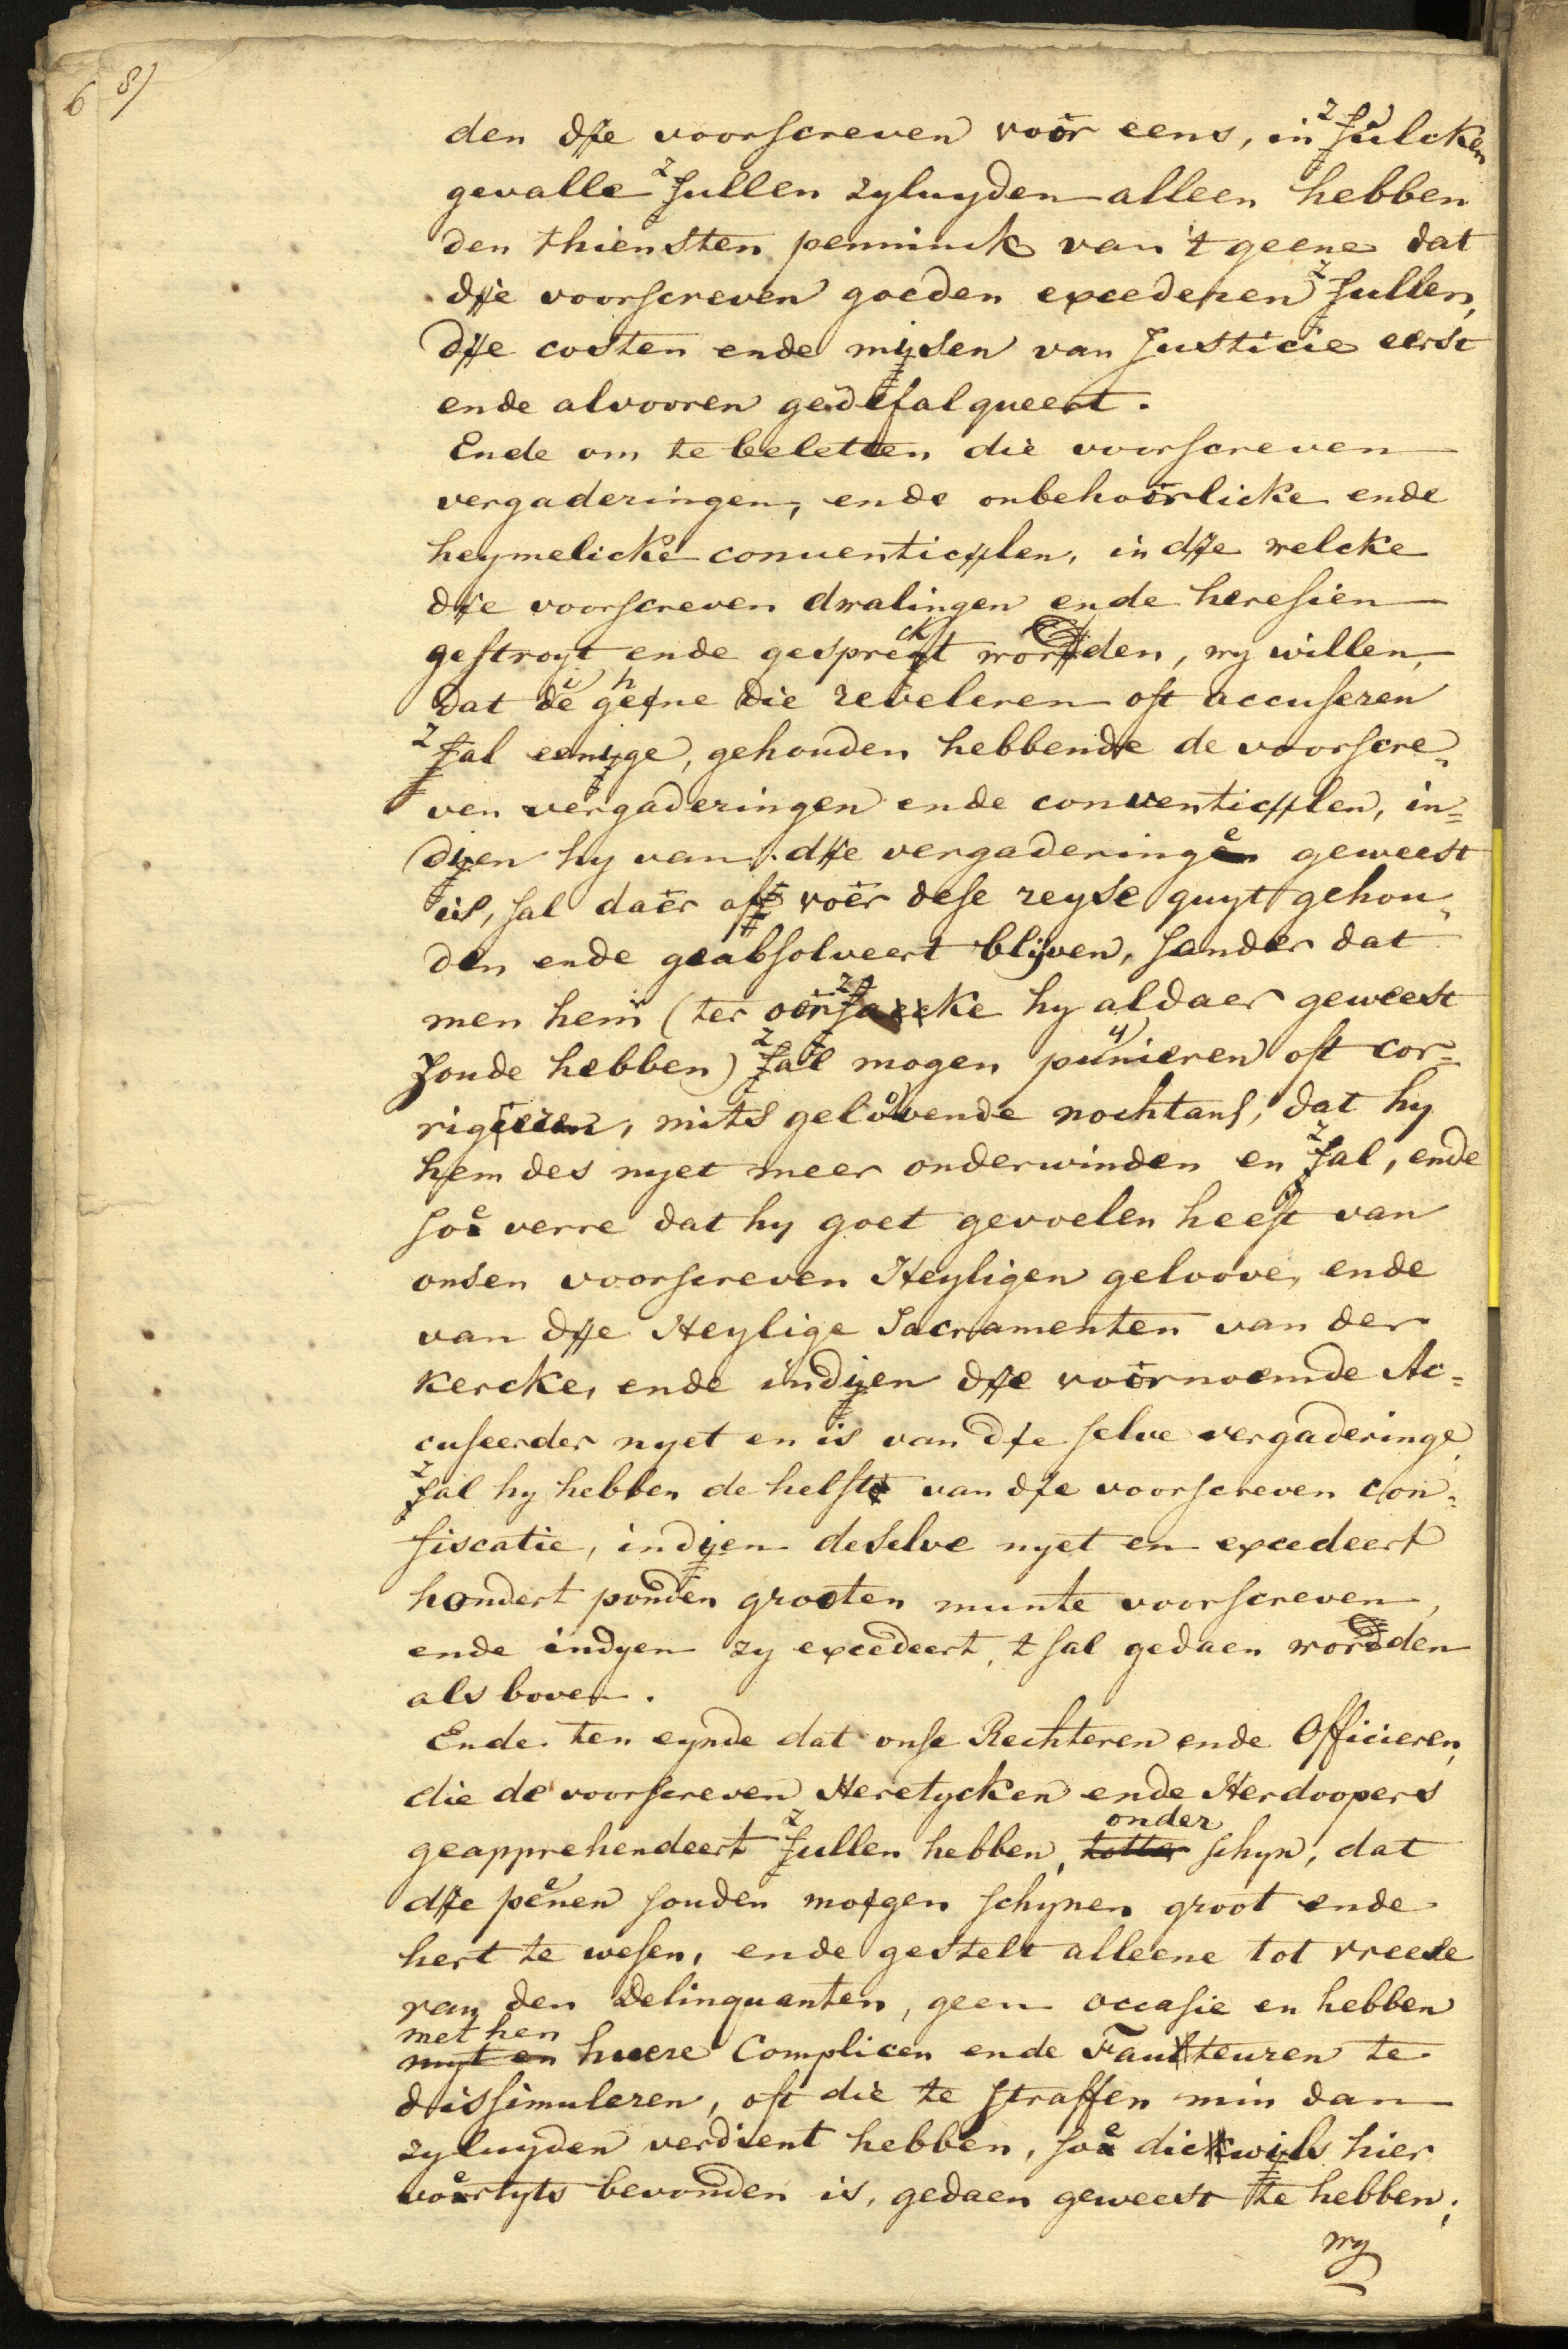 6 8)
den die voorscreven voor eens, in zulcken
gevalle zullen zyluyden alleen hebben
den thiensten penninck van 't geene dat
die voorscreven goeden excederen zullen,
die costen ende mijsen van Justicie eerst
ende alvooren gedefalqueert.
Ende om te beletten die voorscreven
vergaderingen, ende onbehoorlicke ende
heymelicke conventiclen, in die welcke
die voorscreven dwalingen ende heresien
gestroyt ende gespreckt worden, wy willen,
dat de gene die reveleren oft accuseren
zal eenige, gehouden hebbende de voorscre„
ven vergaderingen ende conventiclen, in=
dyen hy van die vergaderinge geweest
is, sal daer aff voer dese reyse quyt gehou„
den ende geabsolveert blijven, sonder dat
men hem (ter oirzaecke hy aldaer geweest
zoude hebben) zal mogen punieren oft cor=
rigieren, mits gelovende nochtans, dat hy
hem des nyet meer onderwinden en zal, ende
soe verre dat hy goet gevoelen heeft van
onsen voorscreven Heyligen geloove, ende
van die Heylige Sacramenten van der
kercke, ende indyen die voornoemde Ac=
cuseerder nyet en is van die selve vergaderinge,
zal hy hebben de helft van die voorscreven con=
fiscatie, indyen deselve nyet en excedeert
hondert ponden grooten munte voorscreven,
ende indyen zy excedeert, t sal gedaen worden
als boven.
Ende ten eynde dat onse Rechteren ende Officieren,
die de voorscreven Heretycken ende Herdoopers
geapprehendeert zullen hebben, onder schyn, dat
die penen souden mogen schynen groot ende
hert te wesen, ende gestelt alleene tot vreese
van den Delinquanten, geen occasie en hebben
met hen huere Complicen ende Faulteuren te
dissimuleren, oft die te straffen min dan
zyluyden verdient hebben, soe dickwils hier
voertyts bevonden is, gedaen geweest te hebben;
wy